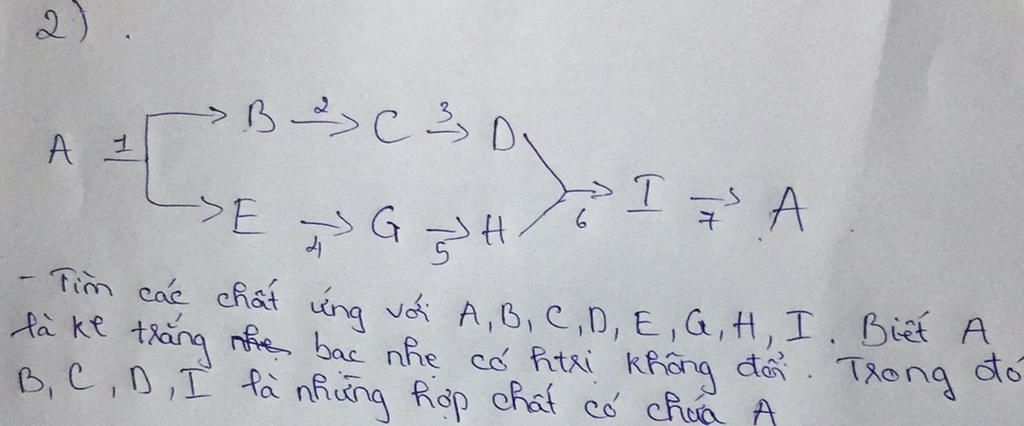 2) .
B 2 C 3 D
A 1
6 I 7 A
E 4 G 5 H
- Tìm các chất ứng với A, B, C, D, E, G, H, I. Biết A
là kl trắng nhẹ bạc nhẹ có htrị không đổi. Trong đó
B, C, D, I là những hợp chất có chứa A